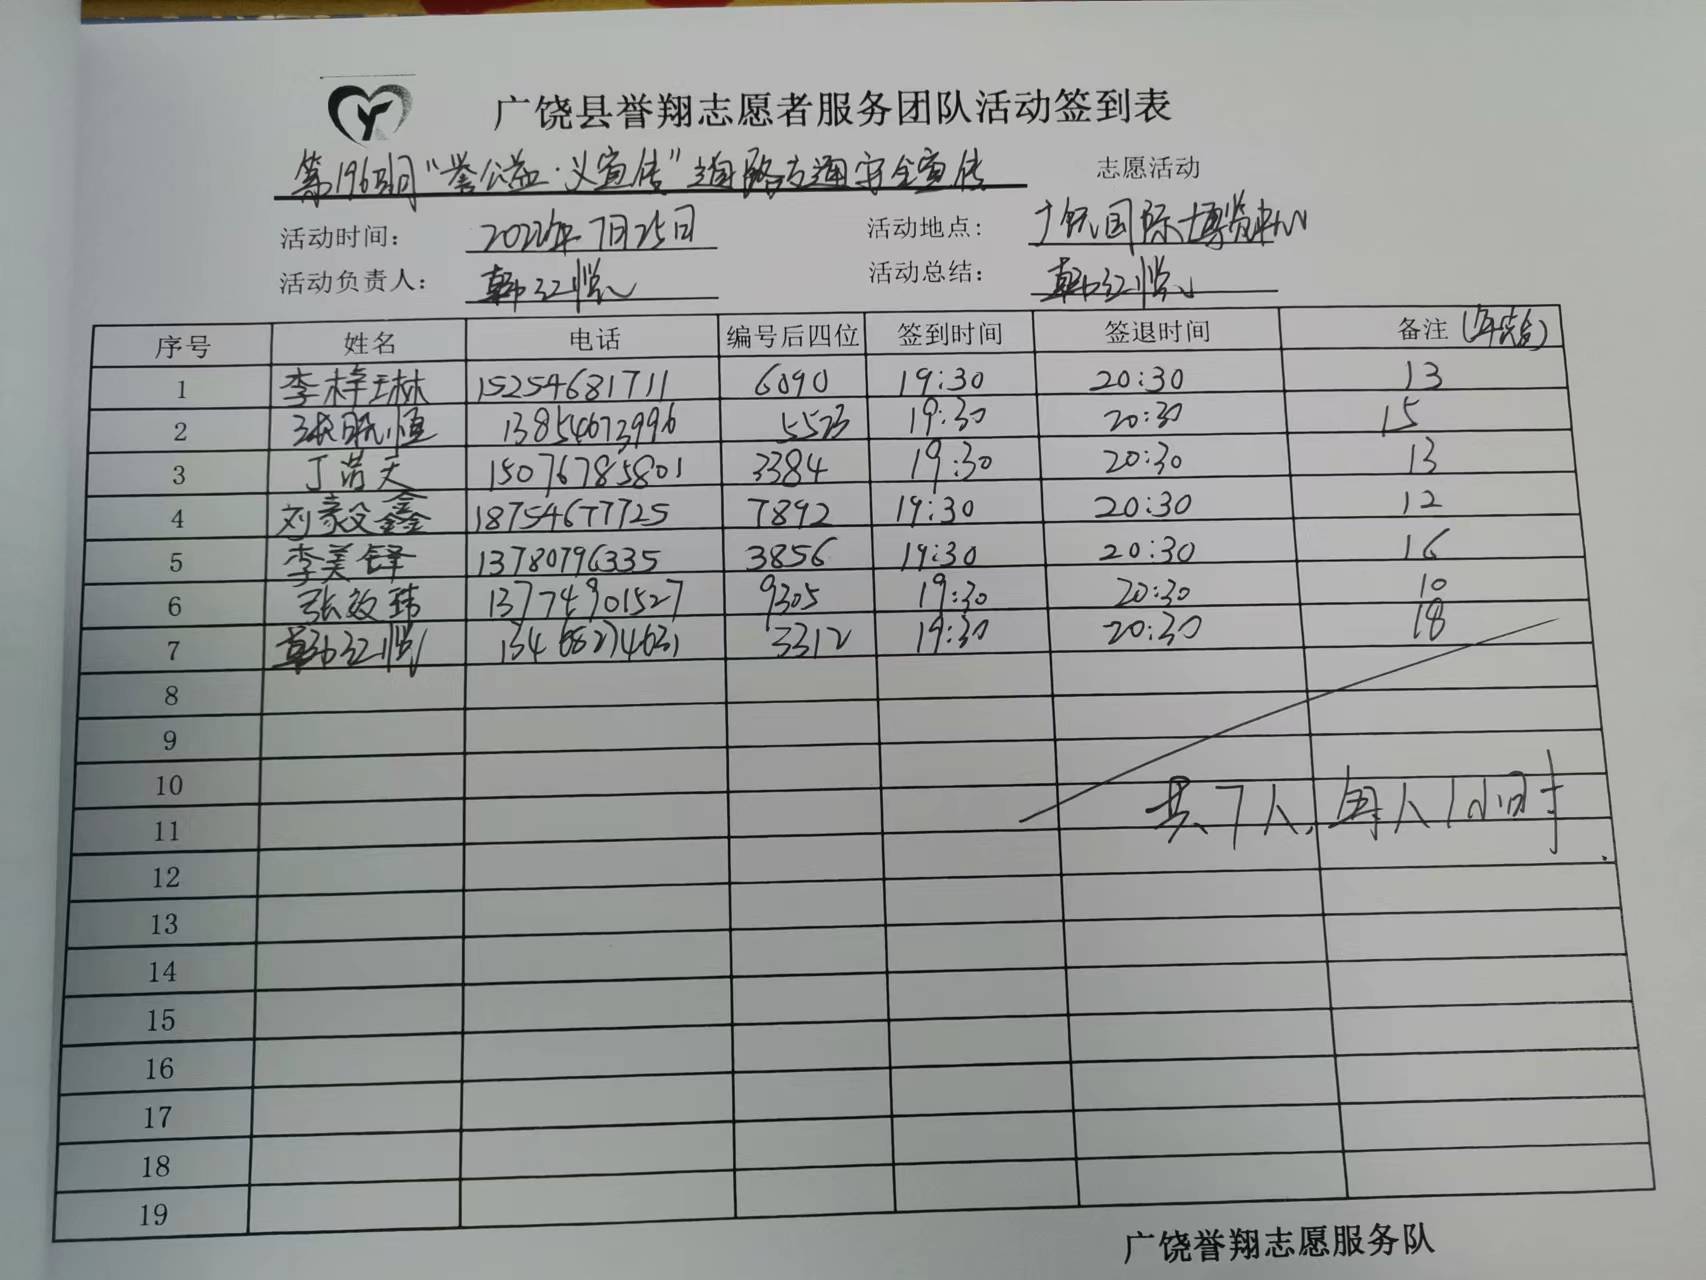 广饶县誉翔志愿者服务团队活动签到表
第196期"誉公益·义宣传"道路交通安全宣传 志愿活动
活动时间： 2022年7月25日 活动地点： 广饶国际博览中心
活动负责人： 韩红悦 活动总结： 韩红悦
序号 姓名 电话 编号后四位 签到时间 签退时间 备注(年龄)
1 李梓琳 15254681711 6090 19:30 20:30 13
2 张恒 13854673996 5523 19:30 20:30 15
3 丁浩天 15076785801 3384 19:30 20:30 13
4 刘毅鑫 18754677725 7892 19:30 20:30 12
5 李美铎 13780796335 3856 19:30 20:30 16
6 张效玮 13774901527 9305 19:30 20:30 10
7 韩红悦 13468274631 3312 19:30 20:30 18
8
9
10
共7人，每人1小时
11
12
13
14
15
16
17
18
19
广饶誉翔志愿服务队